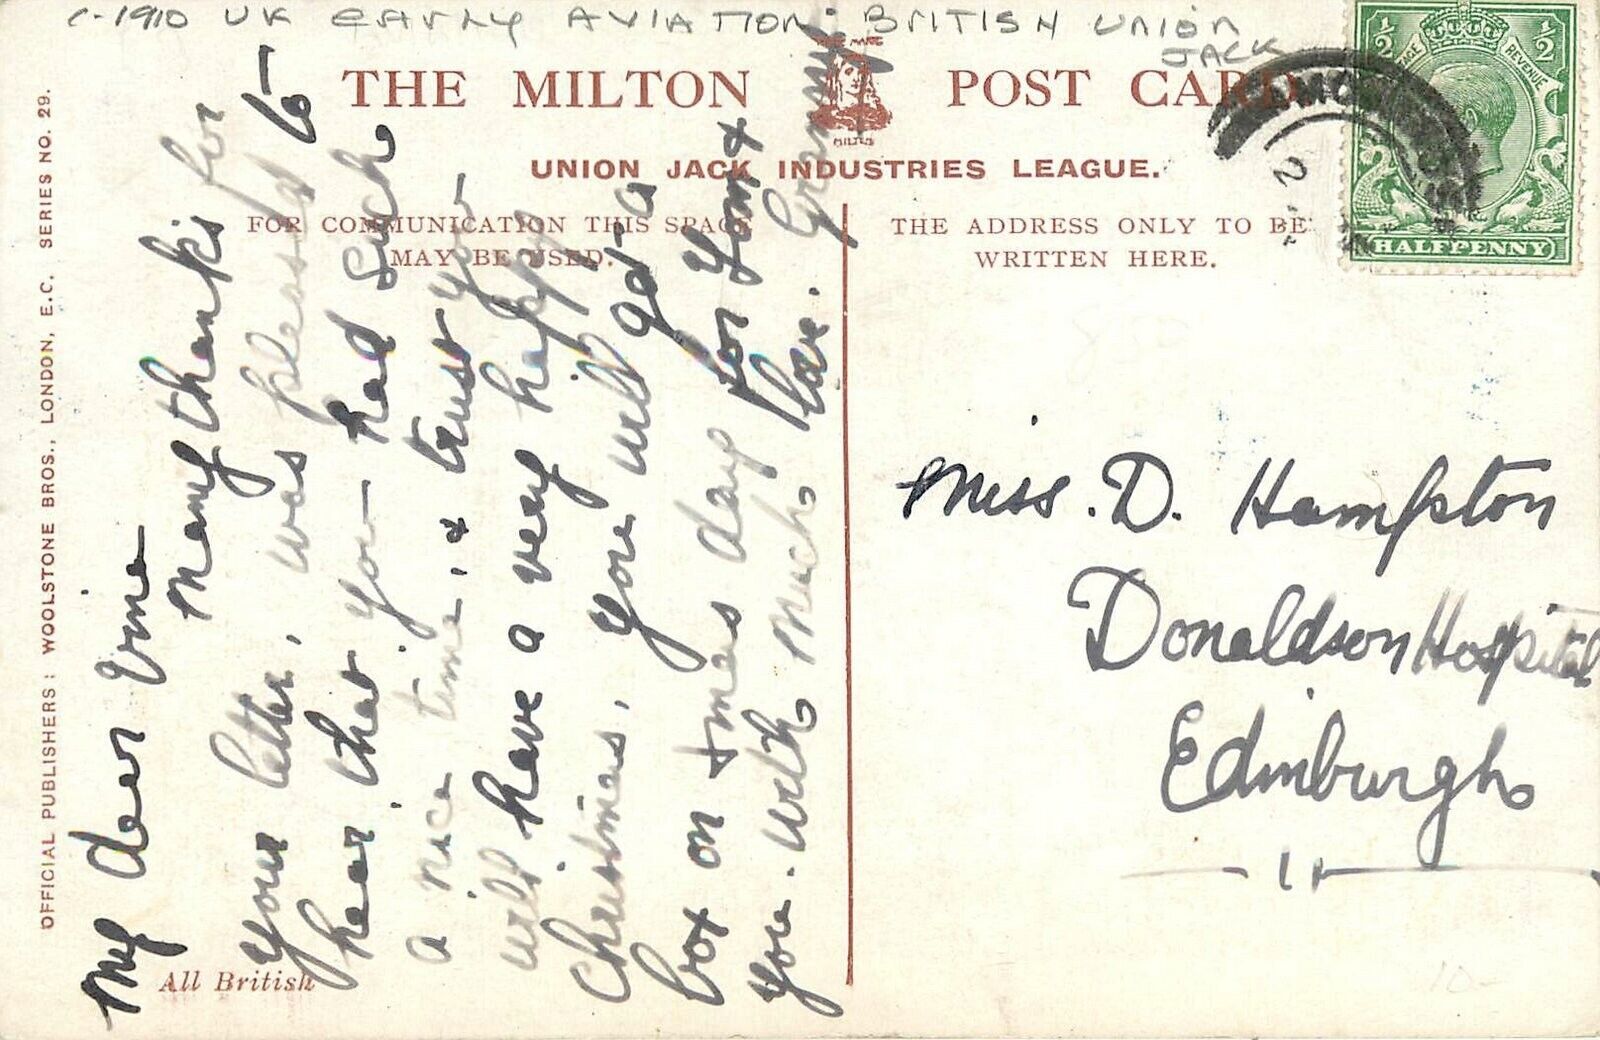 C-1910 UK EARLY AVIATION: BRITISH UNION
JACK
THE MILTON POST CARD
TRADE MARK
MILTON
UNION JACK INDUSTRIES LEAGUE.
FOR COMMUNICATION THIS SPACE
MAY BE USED.
THE ADDRESS ONLY TO BE
WRITTEN HERE.
REVENUE
½
½
HALFPENNY
OFFICIAL PUBLISHERS: WOOLSTONE BROS., LONDON, E.C. SERIES NO. 29.
My dear
Many thanks for
your letter, was pleased to
hear that you had such
a nice time, & trust you
will have a very happy
Christmas, you will get a
box on Xmas day for you &
you. With much love. Granny.
All British
Miss. D. Hampton
Donaldson Hospital
Edinburgh
10-